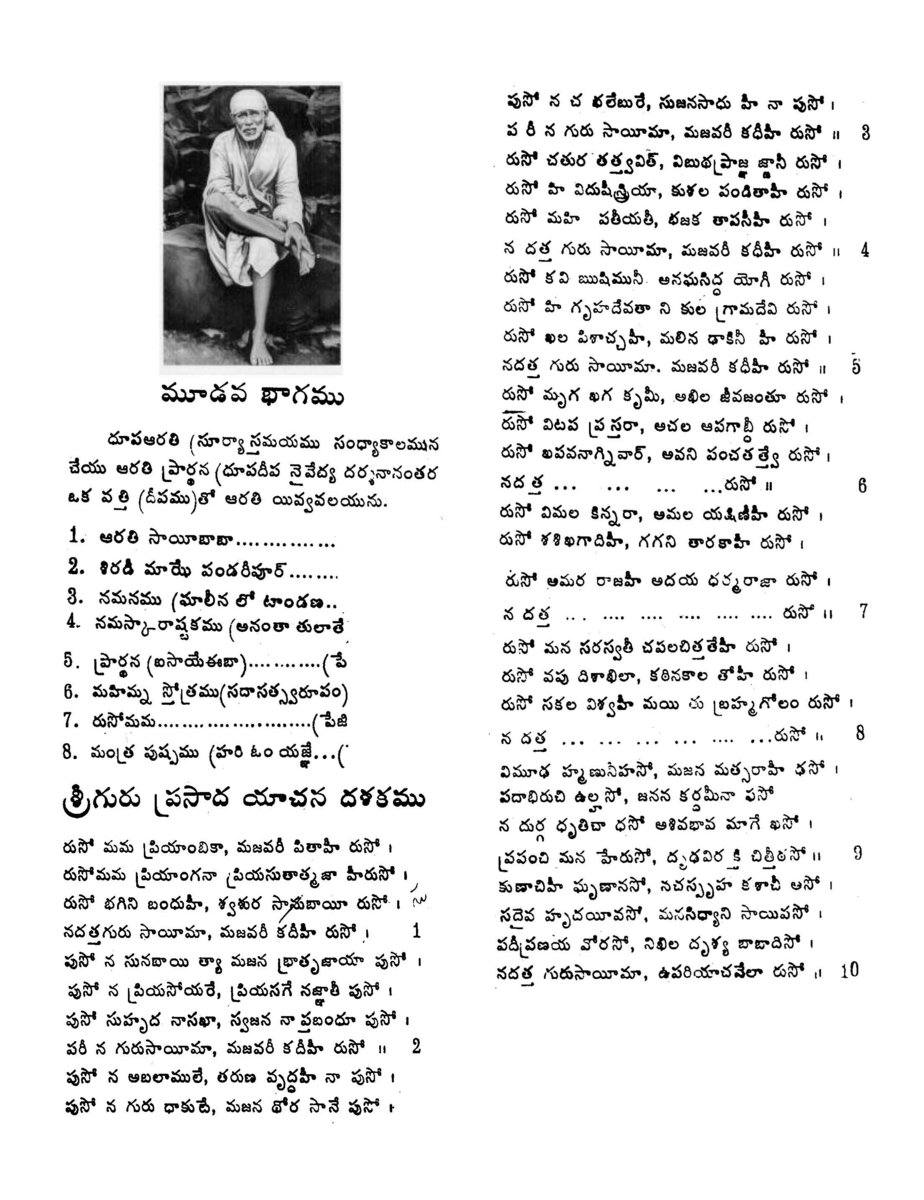 మూడవ భాగము
ధూపఆరతి (సూర్యాస్తమయము సంధ్యాకాలమున
చేయు ఆరతి ప్రార్థన (ధూపదీప నైవేద్య దర్శనానంతర
ఒక వత్తి (దీపము)తో ఆరతి యివ్వవలయును.
1. ఆరతి సాయీబాబా..............
2. శిరడీ మాఝే పండరీపూర్........
3. నమనము (ఘాలీన లో టాండణ..
4. నమస్కారాష్టకము (అనంతా తులాతే
5. ప్రార్థన (ఐసాయేఈబా)..........(పే
6. మహిమ్న స్తోత్రము(సదాసత్స్వరూపం)
7. రుసోమమ.......................(పేజి
8. మంత్ర పుష్పము (హరి ఓం యజ్ఞే...(
శ్రీగురు ప్రసాద యాచన దశకము
రుసో మమ ప్రియాంబికా, మజవరీ పితాహీ రుసో ।
రుసోమమ ప్రియాంగనా ప్రియసుతాత్మజా హీరుసో ।
రుసో భగిని బంధుహీ, శ్వశుర సాసుబాయీ రుసో ।
నదత్తగురు సాయీమా, మజవరీ కదీహీ రుసో । 1
పుసో న సునబాయి త్యా మజన భ్రాతృజాయా పుసో ।
పుసో న ప్రియసోయరే, ప్రియసగే నజ్ఞాతీ పుసో ।
పుసో సుహృద నాసఖా, స్వజన నా ప్తబంధూ పుసో ।
పరీ న గురుసాయీమా, మజవరీ కదీహీ రుసో ॥ 2
పుసో న అబలాములే, తరుణ వృద్ధహీ నా పుసో ।
పుసో న గురు ధాకుటే, మజన థోర సానే పుసో ।
పుసో న చ భలేబురే, సుజనసాధు హీ నా పుసో ।
పరీ న గురు సాయీమా, మజవరీ కధీహీ రుసో ॥ 3
రుసో చతుర తత్త్వవిత్, విబుధప్రాజ్ఞ జ్ఞానీ రుసో ।
రుసో హి విదుషీస్త్రియా, కుశల పండితాహీ రుసో ।
రుసో మహి పతీయతీ, భజక తాపసీహీ రుసో ।
న దత్త గురు సాయీమా, మజవరీ కధీహీ రుసో ॥ 4
రుసో కవి ఋషిమునీ అనఘసిద్ధ యోగీ రుసో ।
రుసో హి గృహదేవతా ని కుల గ్రామదేవి రుసో ।
రుసో ఖల పిశాచ్చహీ, మలిన ఢాకినీ హీ రుసో ।
నదత్త గురు సాయీమా. మజవరీ కధీహీ రుసో ॥ 5
రుసో మృగ ఖగ కృమీ, అఖిల జీవజంతూ రుసో ।
రుసో విటప ప్రస్తరా, అచల ఆపగాబ్ధీ రుసో ।
రుసో ఖపవనాగ్నివార్, అవని పంచతత్త్వే రుసో ।
నదత్త ... ... ... ...రుసో ॥ 6
రుసో విమల కిన్నరా, అమల యక్షిణీహీ రుసో ।
రుసో శశిఖగాదిహీ, గగని తారకాహీ రుసో ।
రుసో అమర రాజహీ అదయ ధర్మరాజా రుసో ।
న దత్త ... .... .... .... .... .... రుసో ॥ 7
రుసో మన సరస్వతీ చపలచిత్తతేహీ రుసో ।
రుసో వపు దిశాఖిలా, కఠినకాల తోహీ రుసో ।
రుసో సకల విశ్వహీ మయి తు బ్రహ్మగోలం రుసో ।
న దత్త ... ... ... ... .... ...రుసో ॥ 8
విమూఢ హ్మణునీహసో, మజన మత్సరాహీ ఢసో ।
పదాభిరుచి ఉల్హసో, జనన కర్దమీనా ఫసో
న దుర్గ ధృతిచా ధసో అశివభావ మాగే ఖసో ।
ప్రపంచి మన హేరుసో, దృఢవిరక్తి చిత్తీఠసో ॥ 9
కుణాచిహీ ఘృణానసో, నచస్పృహ కశాచీ అసో ।
సదైవ హృదయీవసో, మనసిధ్యాని సాయివసో ।
పదీప్రణయ వోరసో, నిఖిల దృశ్య బాబాదిసో ।
నదత్త గురుసాయీమా, ఉపరియాచవేలా రుసో ॥ 10